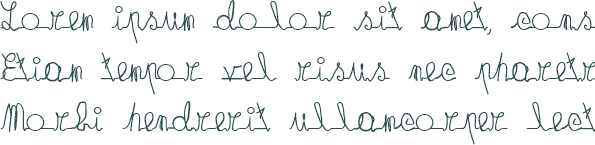 Lorem ipsum dolor sit amet, cons
Etiam tempor vel risus nec pharetr
Morbi hendrerit ullamcorper lect